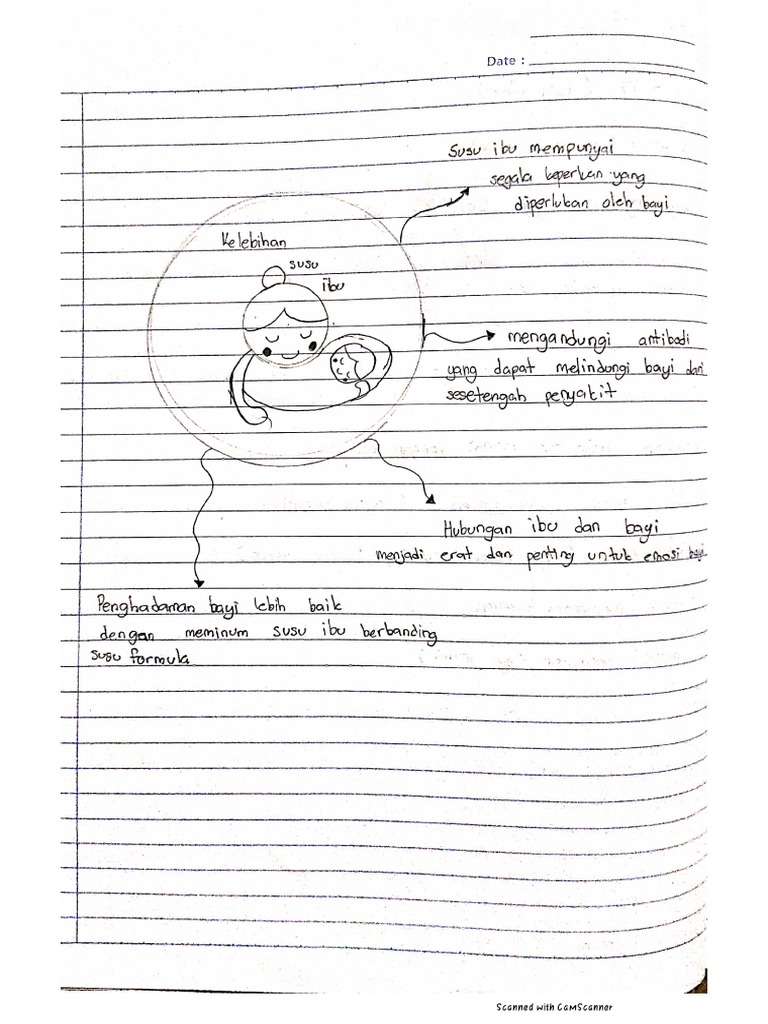 Date :
Susu ibu mempunyai
segala keperluan yang
diperlukan oleh bayi
Kelebihan
susu
ibu
mengandungi antibodi
yang dapat melindungi bayi dari
sesetengah penyakit
Hubungan ibu dan bayi
menjadi erat dan penting untuk emosi bayi
Penghadaman bayi lebih baik
dengan meminum susu ibu berbanding
susu formula
Scanned with CamScanner